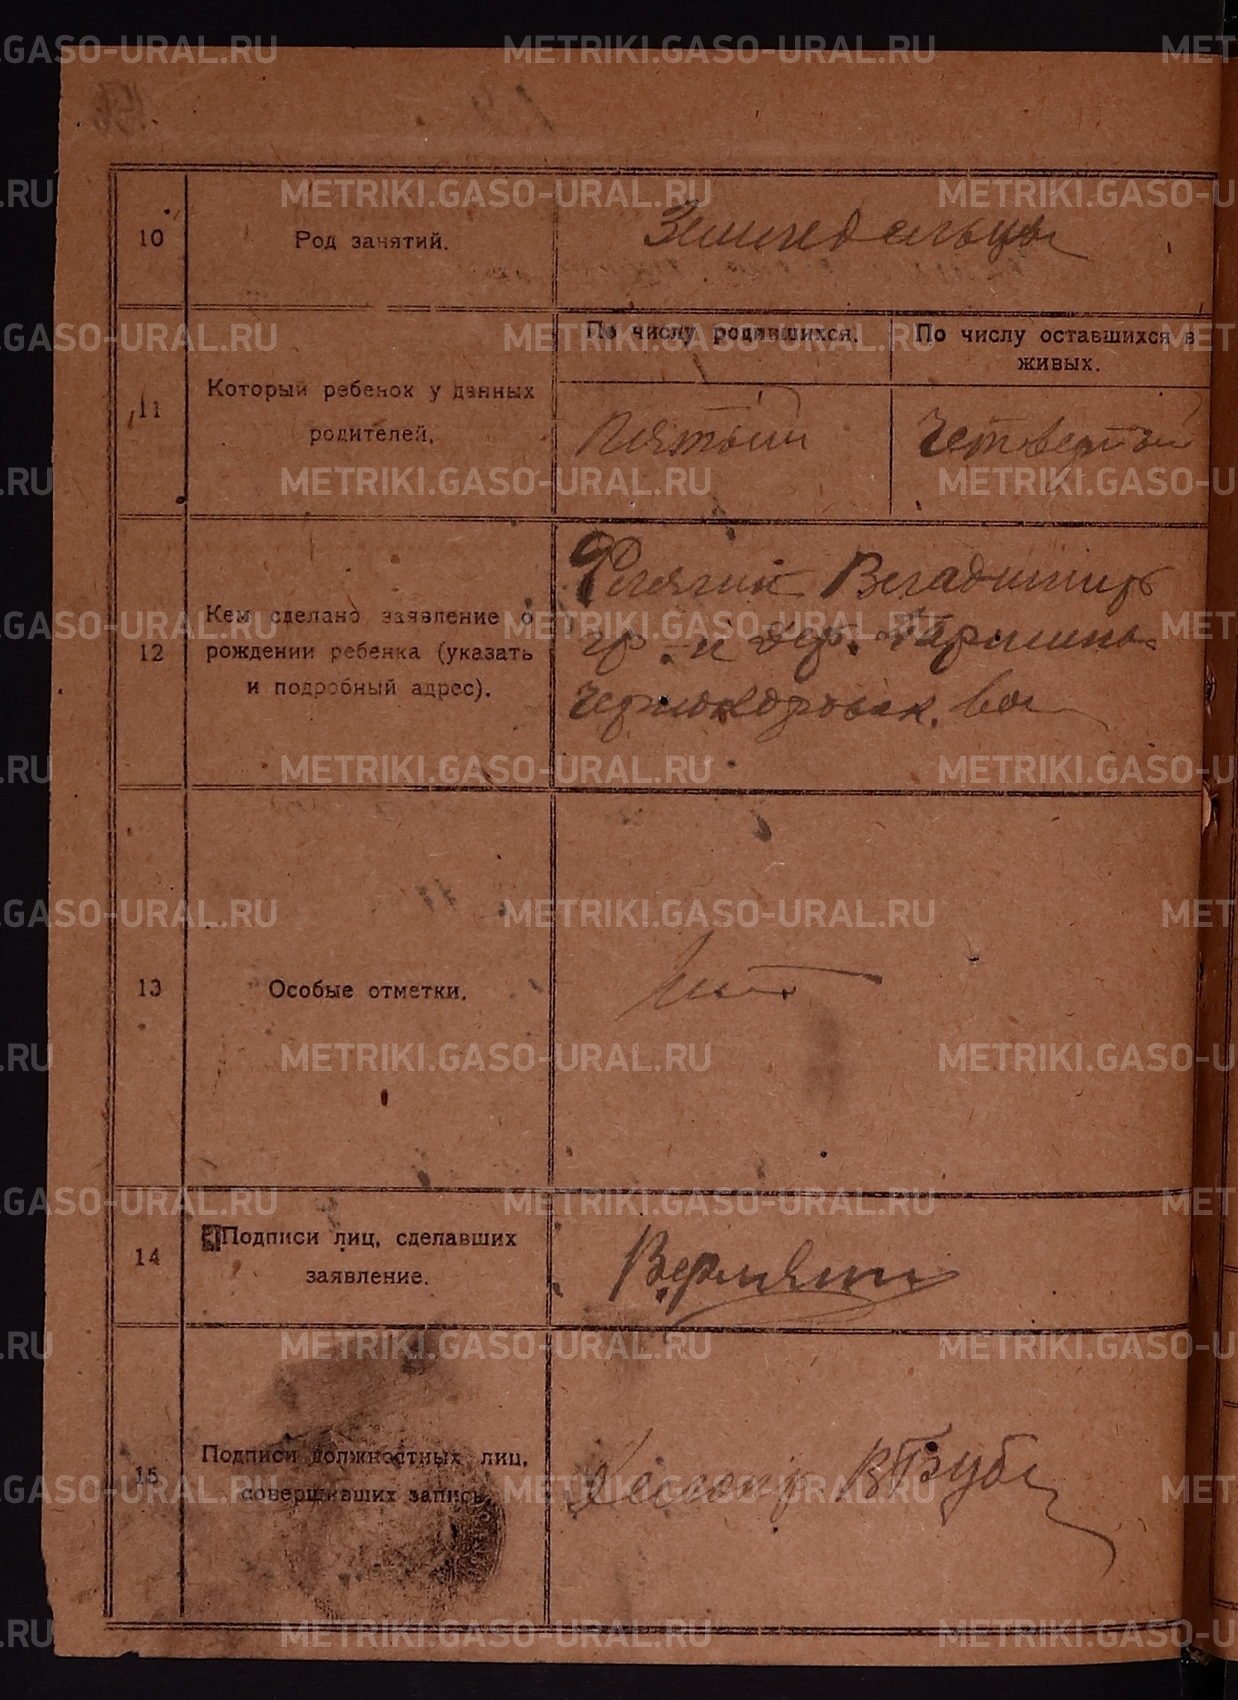 10
Род занятий.
Земледельцы
11
Который ребенок у данных
родителей.
По числу родившихся.
По числу оставшихся в
живых.
Пятый
Четвертый
12
Кем сделано заявление о
рождении ребенка (указать
и подробный адрес).
Владимир
гр. и дер.
Чернокоровск. вол
13
Особые отметки.
Нет
14
Подписи лиц, сделавших
заявление.
15
Подписи должностных лиц,
совершивших запись.
METRIKI.GASO-URAL.RU